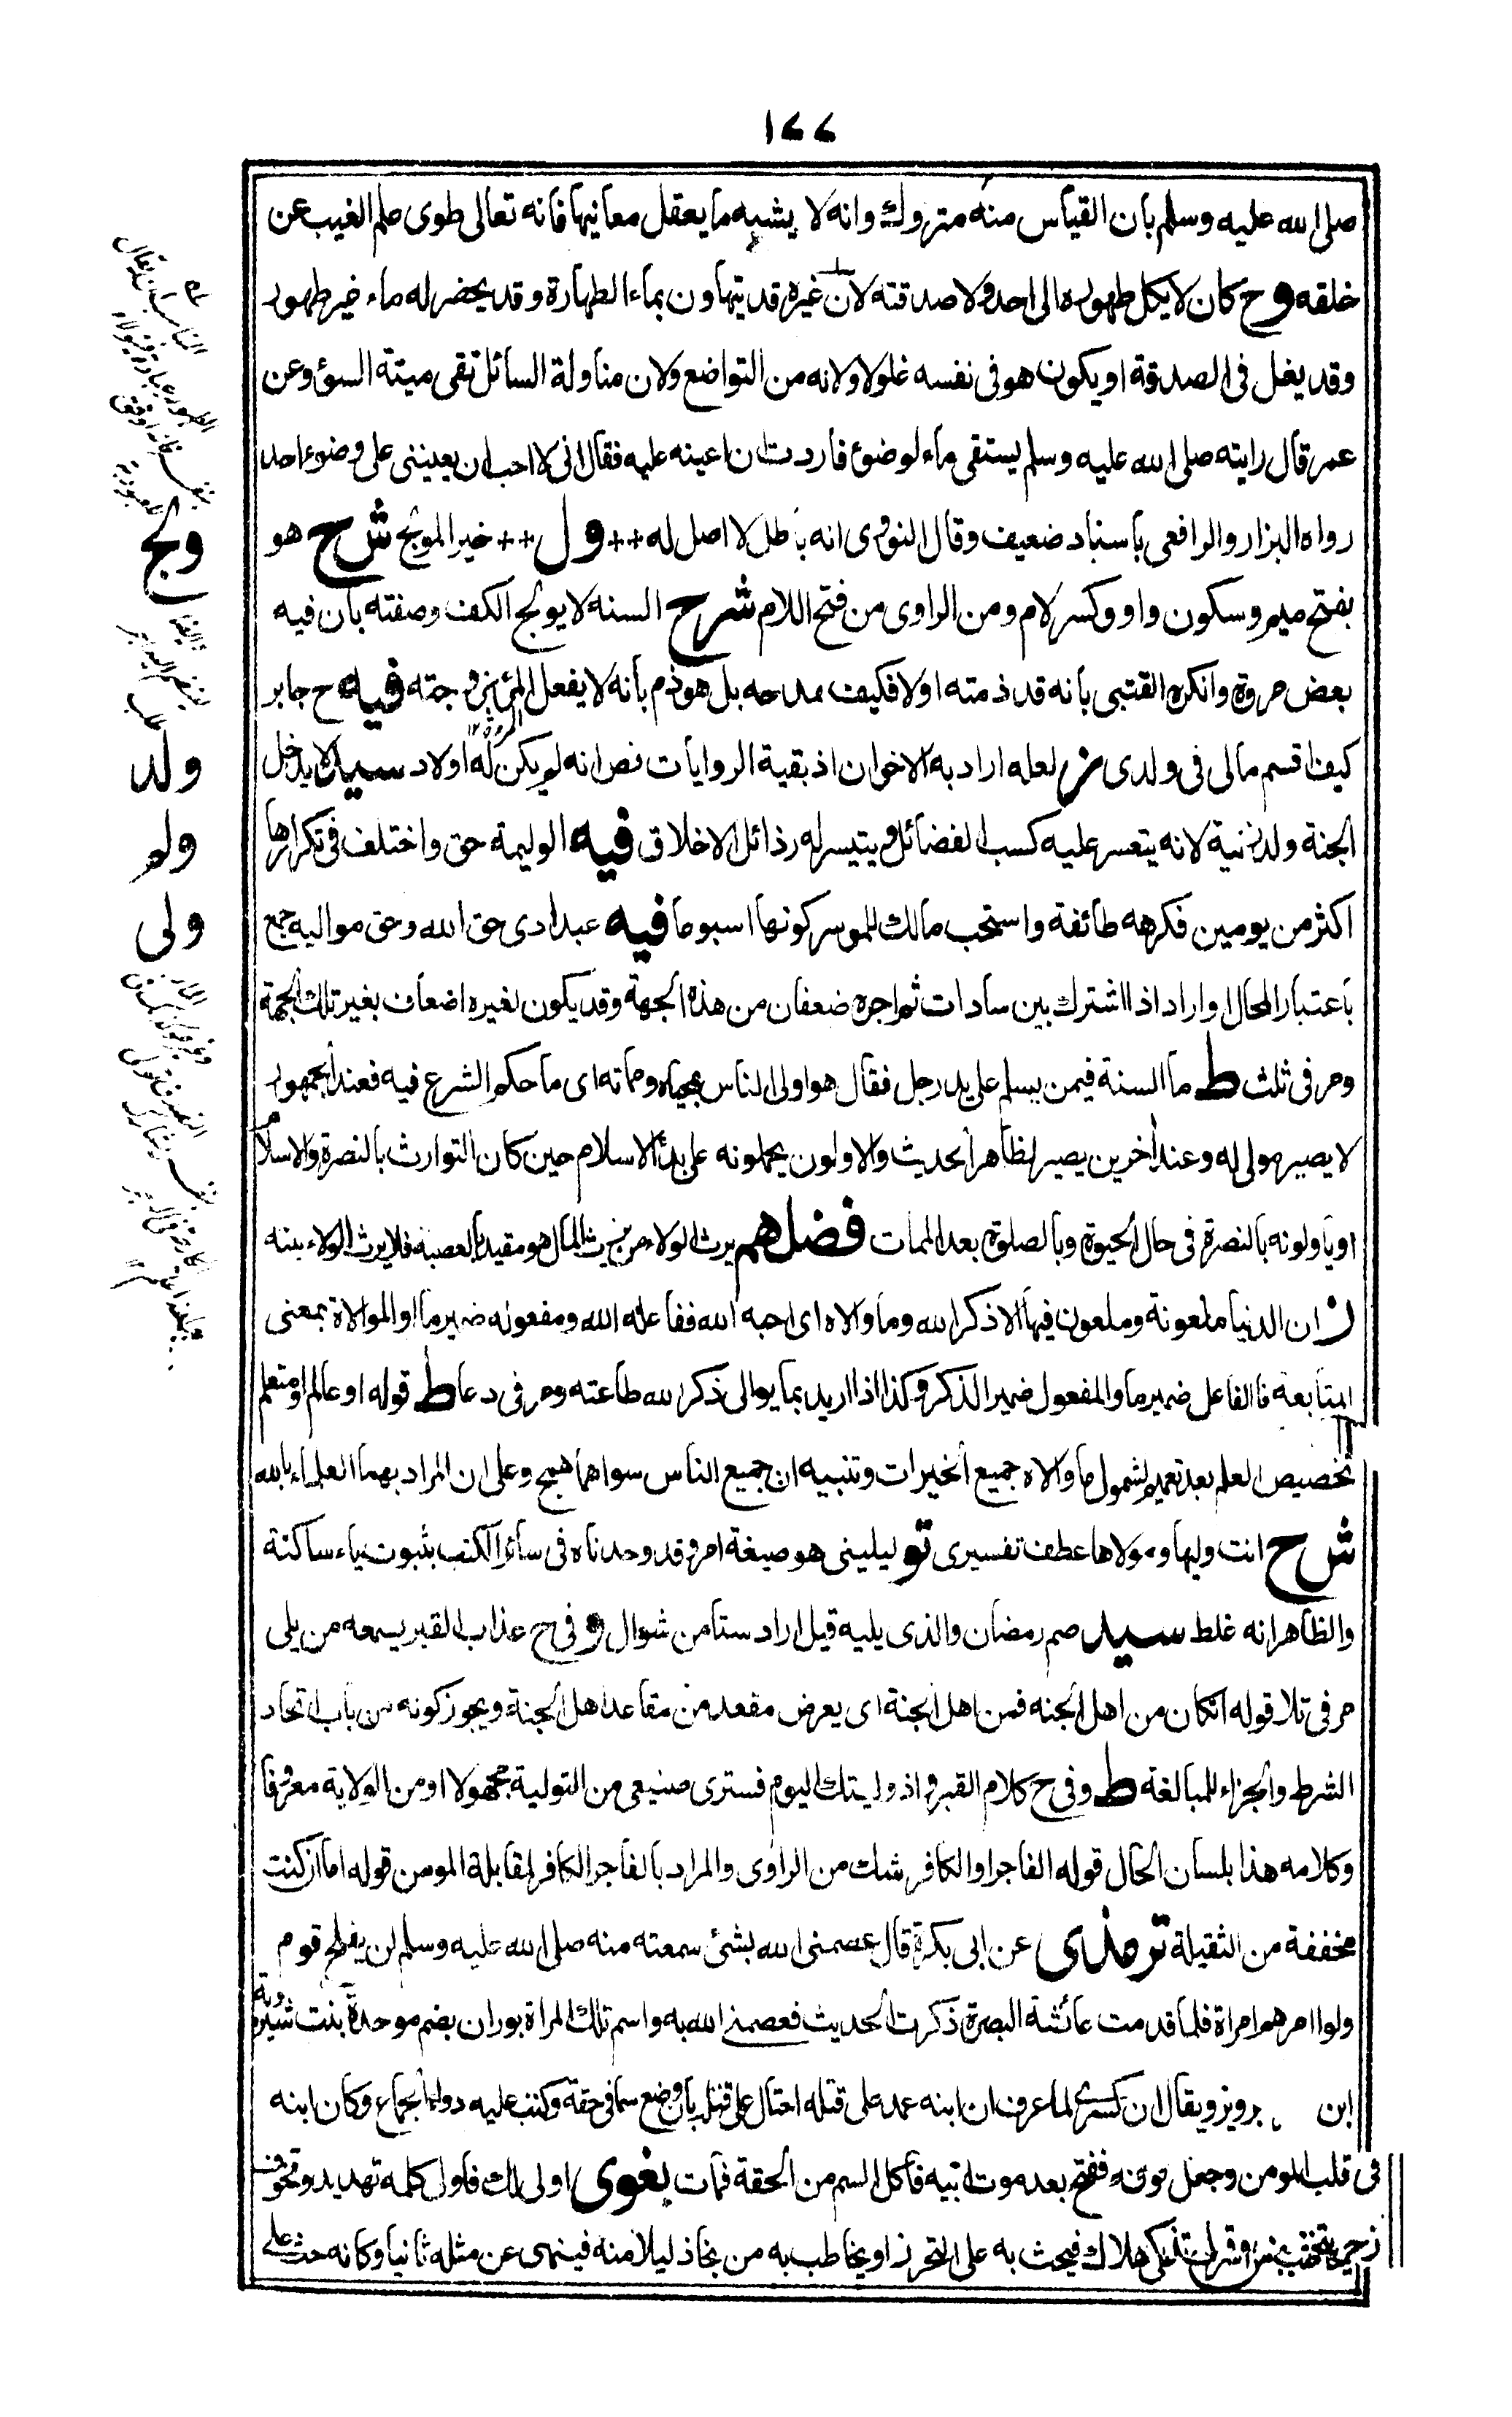 ١٧٧
صلى الله عليه وسلم بان القياس منه متروك وانه لا يشبه ما يعقل معانيها فانه تعالى طوى علم الغيب عن
خلقه وح كان لا يكل طهوره الى احد ولا صدقته لان غيره قد يتهاون بماء الطهارة وقد يحضر له ماء غير طهور
وقد يغل فى الصدقة او يكون هو فى نفسه غلولا ولانه من التواضع ولان مناولة السائل تقى ميتة السوء وعن
عمر قال رايته صلى الله عليه وسلم يستقى ماء لوضوء فاردت ان اعينه عليه فقال انى لا احب ان يعيننى على وضوء احد
رواه البزار والرافعى باسناد ضعيف وقال النووى انه باطل لا اصل له ++ ول ++ خير المولج شح هو
بفتح ميم وسكون واو وكسر لام ومن الراوى من فتح اللام شرح السنه لا يولج الكف وصفته بان فيه
بعض مروة وانكره القتبى بانه قد ذمته اولا فكيف مدحه بل هو ذم بانه لا يفعل المرئ بزوجته فيه ح جابر
كيف اقسم مالى فى ولدى ن لعله اراد به الاخوان اذ بقية الروايات نص انه لم يكن له اولاد سيد لا يدخل
الجنة ولد زنية لانه يتعسر عليه كسب الفضائل ويتيسر له رذائل الاخلاق فيه الوليمة حق واختلف فى تكرارها
اكثر من يومين فكرهه طائفة واستحب مالك للموسر كونها اسبوعا فيه عبد ادى حق الله وحق مواليه جمع
باعتبار المحال او اراد اذا اشترك بين سادات ثم اجره ضعفان من هذه الجهة وقد يكون لغيره اضعاف بغير تلك الجهة
ومر فى ثلث ط ما السنة فيمن يسلم على يد رجل فقال هو اولى الناس بمحياه ومماته اى ما حكم الشرع فيه فعند الجمهور
لا يصير مولى له وعند أخرين يصير لظاهر الحديث والاولون يحملونه على بدأ الاسلام حين كان التوارث بالنصرة والاسلام
او ياولونه بالنصرة فى حال الحيوة وبالصلوة بعد الممات فضلهم يرث الولاء من يرث المال هو مقيد بالعصبة فلا يرث الولاء بنته
ن ان الدنيا ملعونة وملعون فيها الا ذكر الله وما والاه اى احبه الله ففاعله الله ومفعوله ضمير ما او الموالاة بمعنى
المتابعة فالفاعل ضمير ما والمفعول ضمير الذكر وكذا اذا اريد بما يوالى ذكر الله طاعته ومر فى دعا ط قوله او عالم او متعلم
تخصيص العلم بعد تعميم لشمول ما والاه جميع الخيرات وتنبيه ان جميع الناس سواهما همج وعلى ان المراد بهما العلماء بالله
شح انت وليها ومولاها عطف تفسيرى تو ليلينى هو صيغة امر وقد وجدناه فى سائر الكتب بثبوت ياء ساكنة
والظاهر انه غلط سيد صم رمضان والذى يليه قيل اراد ستا من شوال و فى ح عذاب القبر يسمعه من يلى
مر فى تلا قوله انكان من اهل الجنه فمن اهل الجنة اى يعرض مقعد من مقاعد اهل الجنة ويجوز كونه من باب اتحاد
الشرط والجزاء للمبالغة ط وفى ح كلام القبر و اذ وليتك اليوم فسترى صنيعى من التولية مجهولا او من الولاية معروفا
وكلامه هذا بلسان الحال قوله الفاجر او الكافر شك من الراوى والمراد بالفاجر الكافر لمقابلة المومن قوله اما ان كنت
مخففة من الثقيلة ترمذى عن ابى بكرة قال عصمنى الله بشئ سمعته منه صلى الله عليه وسلم لن يفلح قوم
ولوا امرهم امراة فلما قدمت عائشة البصرة ذكرت الحديث فعصمنى الله به واسم تلك المراة بوران بضم موحدة بنت شيرويه
ابن برويز ويقال ان كسرى لما عرف ان ابنه عمد على قتله احتال على قتله بان وضع سما فى حقة وكتب عليه دواء الجماع وكان ابنه
فى قلب المومن وجعل ففتح بعد موت ابيه فاكل السم من الحقة فمات بغوى اولى لك فاولى كلمه تهديد وتخوف
هلاك فيحث به على التحرز او يخاطب به من نجا ذليلا منه فينهى عن مثله ثانيا وكانه حث على
ولج
ولد
ولم
ولى